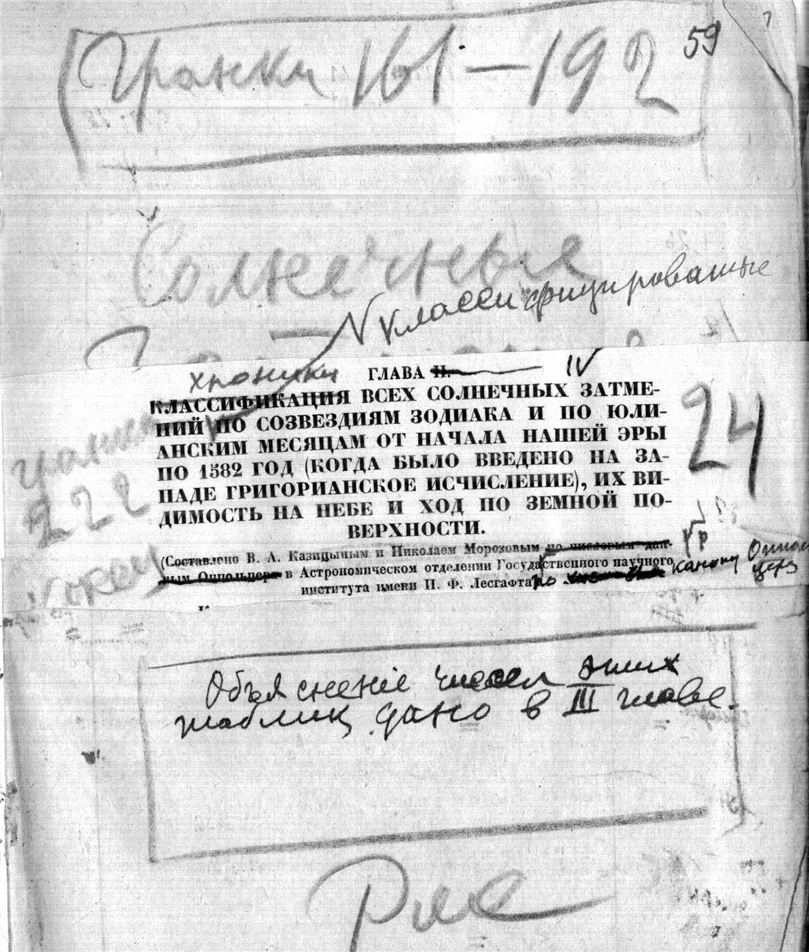 59
Гранки 161—192
Солнечные
классифицированные
хроники
ГЛАВА II. IV
КЛАССИФИКАЦИЯ ВСЕХ СОЛНЕЧНЫХ ЗАТМЕ-
НИЙ ПО СОЗВЕЗДИЯМ ЗОДИАКА И ПО ЮЛИ-
АНСКИМ МЕСЯЦАМ ОТ НАЧАЛА НАШЕЙ ЭРЫ
ПО 1582 ГОД (КОГДА БЫЛО ВВЕДЕНО НА ЗА-
ПАДЕ ГРИГОРИАНСКОЕ ИСЧИСЛЕНИЕ), ИХ ВИ-
ДИМОСТЬ НА НЕБЕ И ХОД ПО ЗЕМНОЙ ПО-
ВЕРХНОСТИ.
24
гранка
222
(Составлено В. А. Казицыным и Николаем Морозовым по числовым дан-
ным Оппольцера в Астрономическом отделении Государственного научного
института имени П. Ф. Лесгафта по канону Оппольцера
Объяснение чисел этих
таблиц дано в III главе.